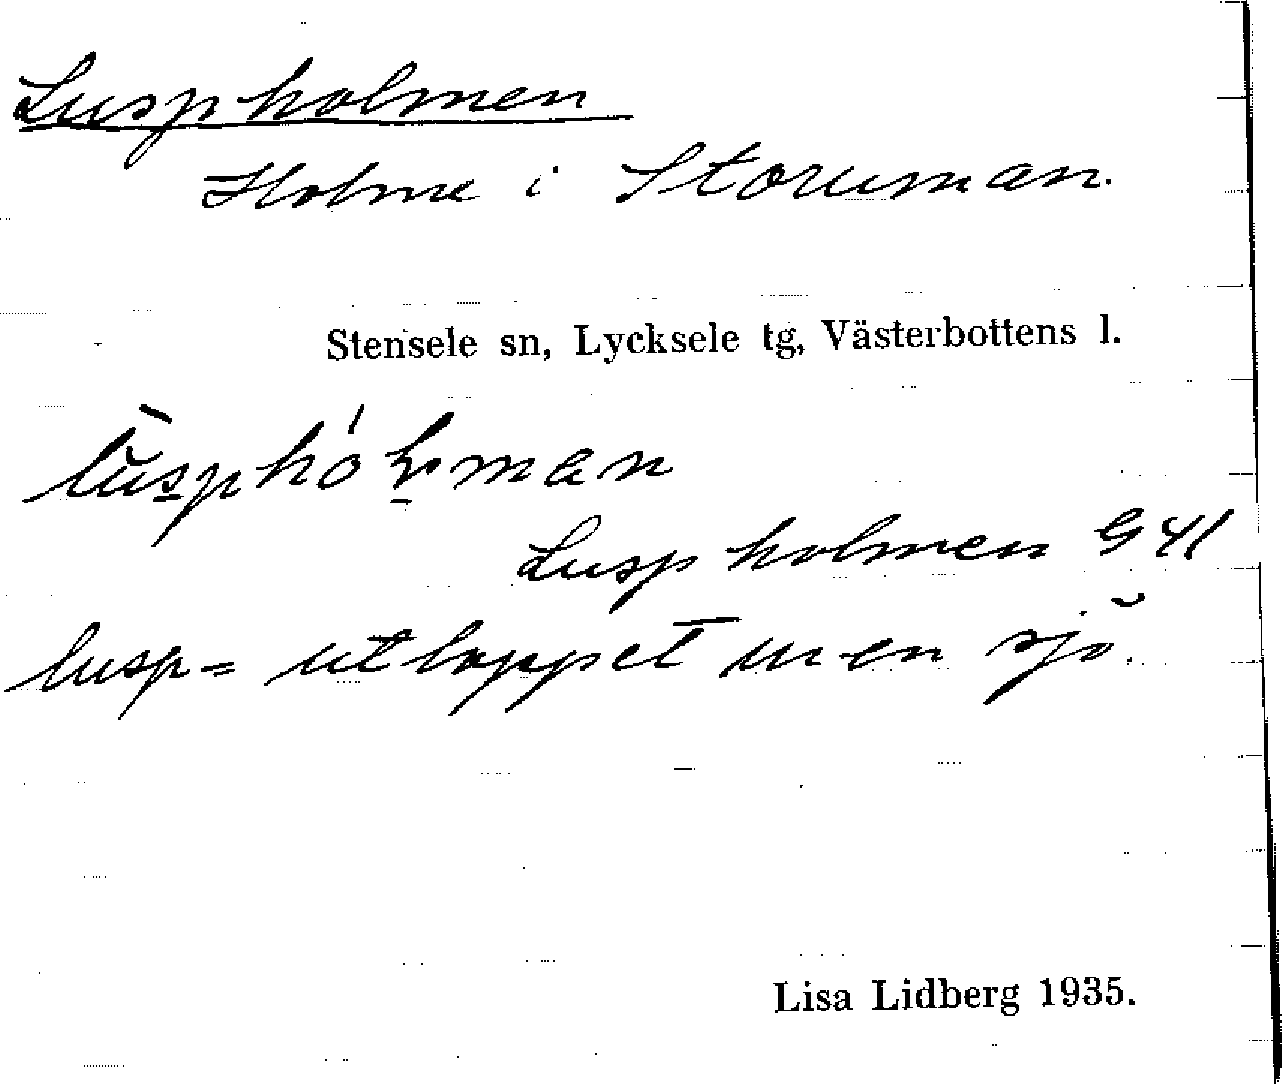 Luspholmen
Holme i Storuman.
Stensele sn, Lycksele tg, Västerbottens l.
Luspholmen G 41
lusp = utloppet ur en sjö.
Lisa Lidberg 1935.